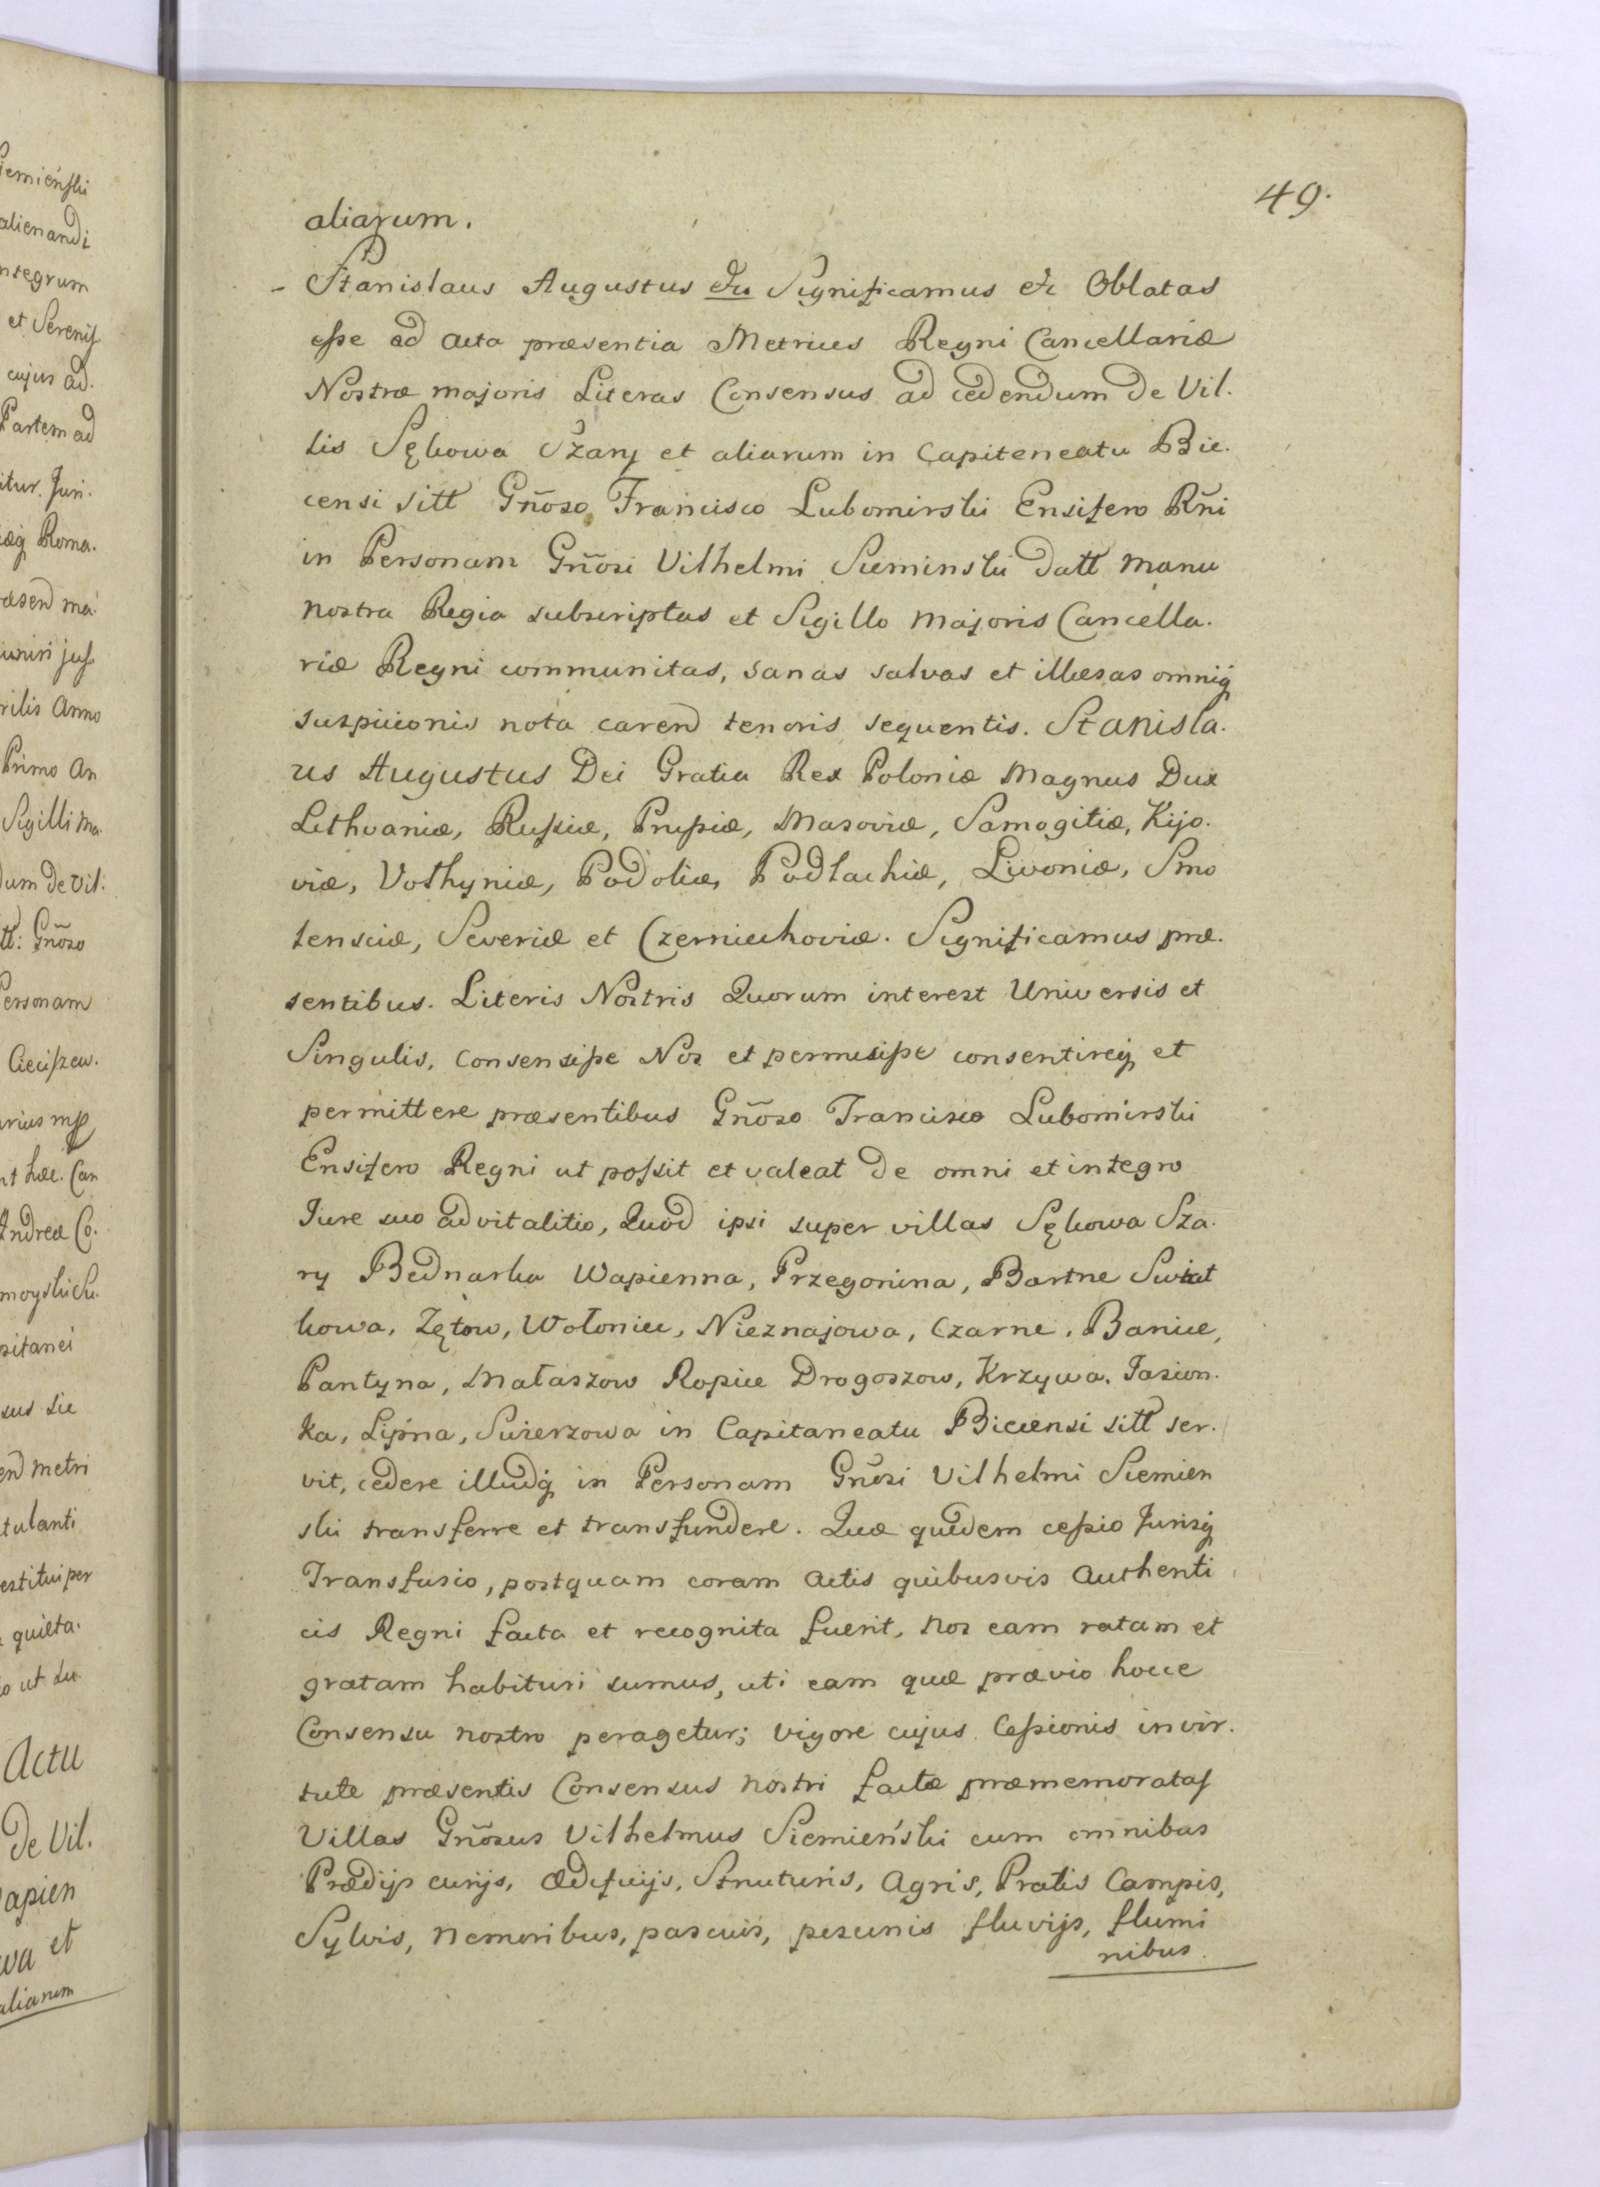 49.
aliarum.
- Stanislaus Augustus etc Significamus etc Oblatas
esse ad Acta præsentia Metrices Regni Cancellariæ
Nostræ majoris Literas Consensus ad cedendum de Vil-
lis Sękowa Szary et aliarum in Capiteneatu Bie-
censi sitt Gn̄oso Francisco Lubomirski Ensifero Rn̄i
in Personam Gn̄osi Vilhelmi Sieminski datt Manu
nostra Regia subscriptas et Sigillo Majoris Cancella-
riæ Regni communitas, sanas salvas et illæsas omniq́
suspicionis nota carend tenoris sequentis. Stanisla-
us Augustus Dei Gratia Rex Poloniæ Magnus Dux
Lithvaniæ, Russiæ, Prussiæ, Masoviæ, Samogitiæ, Kijo-
viæ, Volhyniæ, Podoliæ, Podlachiæ, Livoniæ, Smo
lensciæ, Severiæ et Czerniechoviæ. Significamus præ-
sentibus. Literis Nostris Quorum interest Universis et
Singulis, consensisse Nos et permisisse consentireq́ et
permittere præsentibus Gn̄oso Francisco Lubomirski
Ensifero Regni ut possit et valeat de omni et integro
Jure suo advitalitio, Quod ipsi super villas Sękowa Sza-
ry Bednarka Wapienna, Przegonina, Bartne Swiat
kowa, Zętow, Wołoniec, Nieznajowa, Czarne, Banice,
Pantyna, Małaszow Ropice Drogoszow, Krzywa, Jasion-
ka, Lipna, Swierzowa in Capitaneatu Biecensi sitt ser-
vit, cedere illudq́ in Personam Gn̄osi Vilhelmi Siemien
ski transferre et transfundere. Quæ quidem cessio Jurisq́
Transfusio, postquam coram Actis quibusvis Authenti
cis Regni facta et recognita fuerit, Nos eam ratam et
gratam habituri sumus, uti eam quæ prævio hocce
Consensu nostro peragetur; vigore cujus Cessionis in vir-
tute præsentis Consensus Nostri factæ præmemoratas
Villas Gn̄osus Vilhelmus Siemieński cum omnibus
Prædijs curijs, ædificijs, Structuris, Agris, Pratis Campis,
Sylvis, Nemoribus, pascuis, piscinis fluvijs, flumi
nibus.